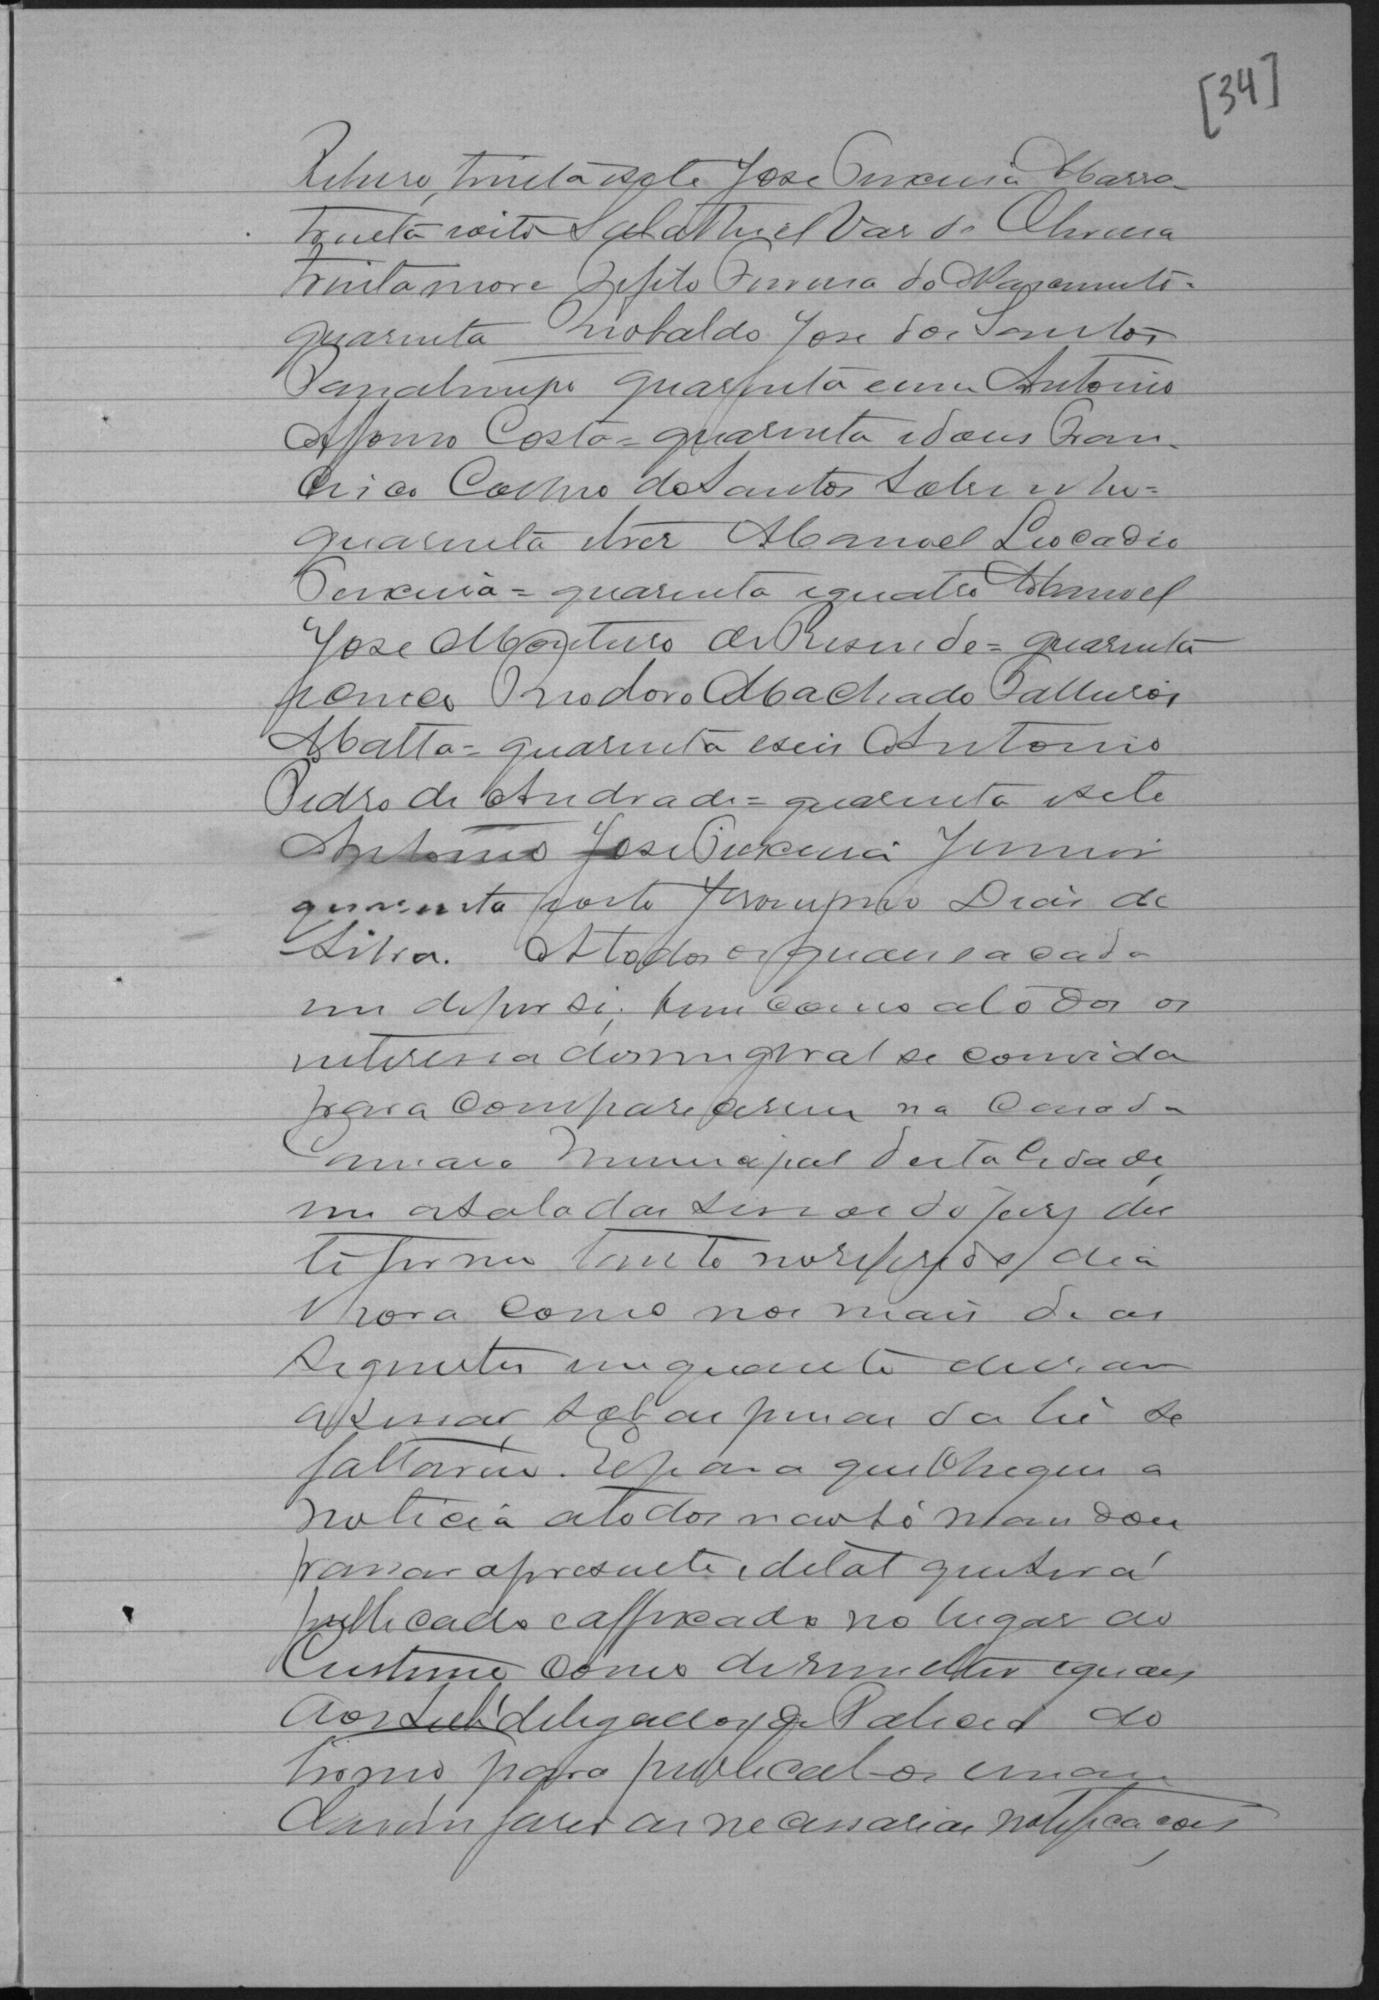 [34]
Ribeiro, trinta e sete José Pereira Marra
trinta e oito Salathiel Vas de Oliveira
trinta nove Ferreira do Nascimento =
quarenta Theobaldo José dos Santos
quarenta e um Antonio
Affonso Costa = quarenta e dous Fran-
cisco Coelho dos Santos Sobrinho =
quarenta e tres Manoel Leocadio
Pereira = quarenta e quatro Manoel
José Monteiro de Resende = quarenta
e cinco Theodoro Machado
Matta = quarenta e seis Antonio
Pedro de Andrade = quarenta e sete
Antonio José Pereira Junior
quarenta e oito Jeronymo Dias da
Silva. A todos os quaes e a cada
um de per si, bem como a todos os
interessados em geral se convida
para comparecerem na Casa da
Camara Municipal desta Cidade,
em a sala das sessoes do jury des
te termo tanto no referido dia
e hora como nos mais dias
seguintes emquanto durar
a sessão, sob as penas da lei se
faltarem. E para que chegue a
noticia a todos não só mandou
passar o presente edital que será
publicado e affixado no lugar do
Custume como remetter iguaes
aos Subdelegados de Policia do
termo para publical-os e man-
darem fazer as necessarias notificações